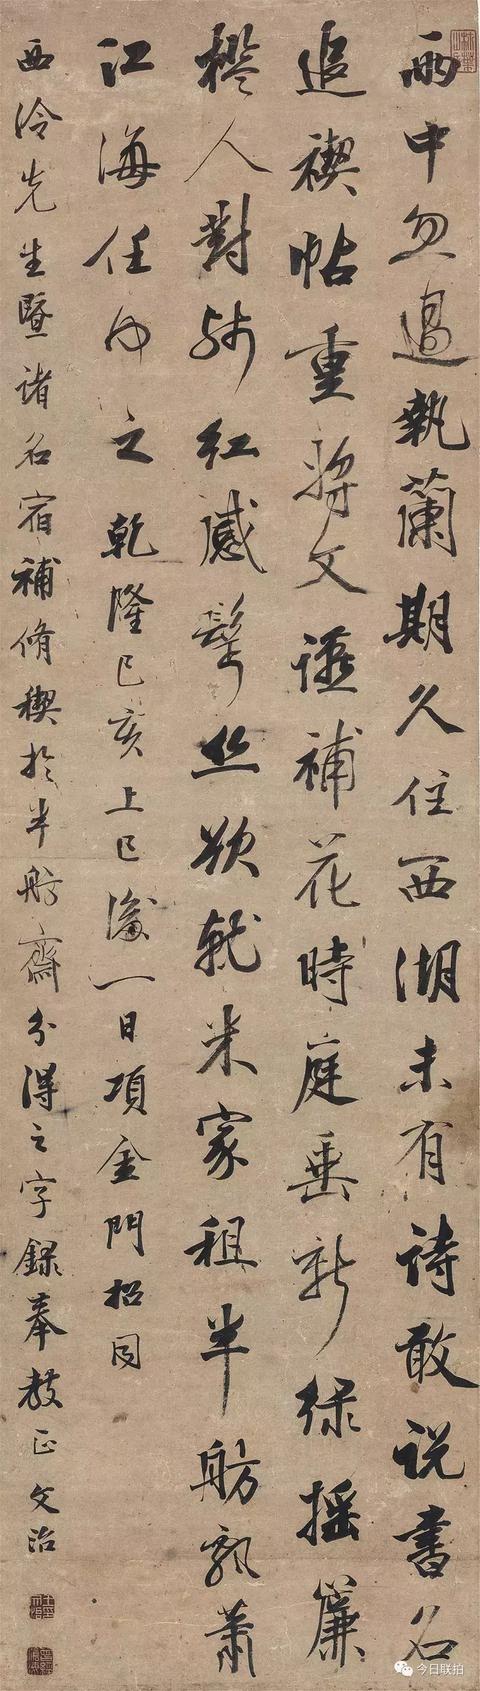 雨中忽過執蘭期久住西湖未有詩敢說書名
追禊帖重將文讌補花時庭垂新綠搖簾
檻人對殘紅感鬢絲欲就米家租半舫飄蕭
江海任所之 乾隆己亥上巳後一日項金門招同
西泠先生暨諸名宿補脩禊於半舫齋分得之字錄奉教正 文治
今日联拍